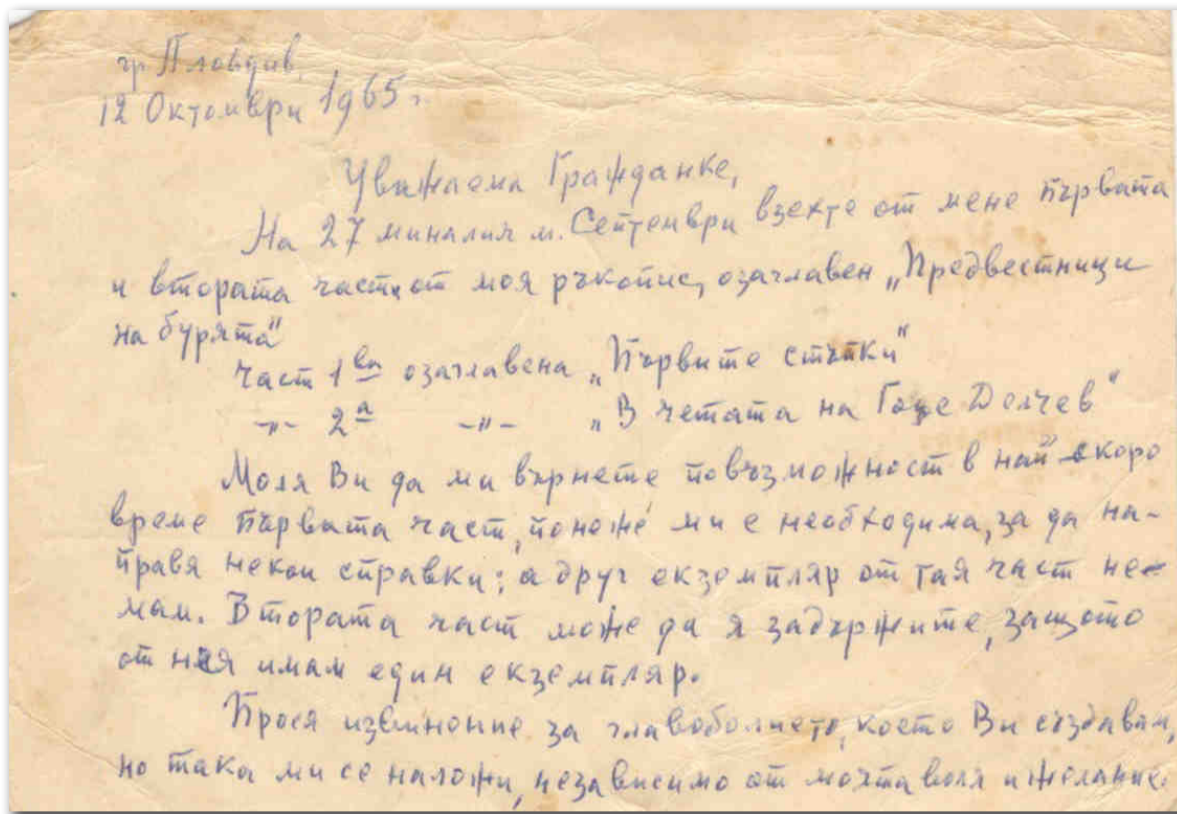 гр. Пловдив,
12 Октомври 1965 г.
Уважаема Гражданке,
На 27 миналия м. Септември взехте от мене първата
и втората части от моя ръкопис, озаглавен „Предвестници
на бурята"
Част 1ва озаглавена „Първите стъпки"
-"- 2а -"- „В четата на Гоце Делчев"
Моля Ви да ми върнете повъзможност в най скоро
време първата част, понеже ми е необходима, за да на-
правя некои справки; а друг екземпляр от тая част не-
мам. Втората част може да я задържите, защото
от нея имам един екземпляр.
Прося извинение за главоболието, което Ви създавам,
но така ми се наложи, независимо от моята воля и желание.